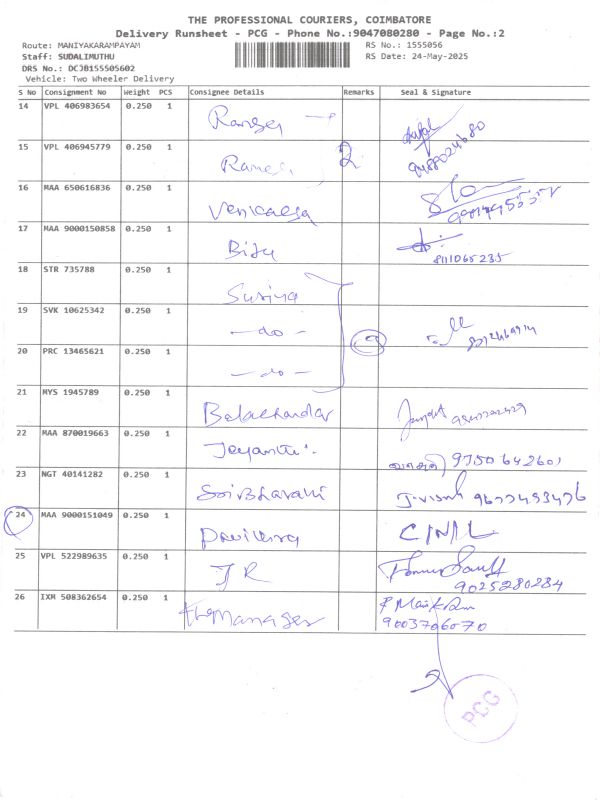 THE PROFESSIONAL COURIERS, COIMBATORE
Delivery Runsheet - PCG - Phone No.:9047080280 - Page No.:2
Route: MANIYAKARAMPAYAM RS No.: 1555056
Staff: SUDALIMUTHU RS Date: 24-May-2025
DRS No.: DCJB155505602
Vehicle: Two Wheeler Delivery
S No Consignment No Weight PCS Consignee Details Remarks Seal & Signature
14 VPL 406983654 0.250 1
9488024680
15 VPL 406945779 0.250 1 Ramesh 2
16 MAA 650616836 0.250 1 Venkatesa
17 MAA 9000150858 0.250 1 Biju 8111065235
18 STR 735788 0.250 1 Suriya
19 SVK 10625342 0.250 1 -do-
20 PRC 13465621 0.250 1 -do-
21 MYS 1945789 0.250 1 Balachandar
22 MAA 870019663 0.250 1 Jeyanthi 9750642601
23 NGT 40141282 0.250 1 Sri Bharathi J-vishnu 9677453476
24 MAA 9000151049 0.250 1 C/N/L
25 VPL 522989635 0.250 1 JR 9025280284
26 IXM 508362654 0.250 1 The Manager
9003706070
PCG